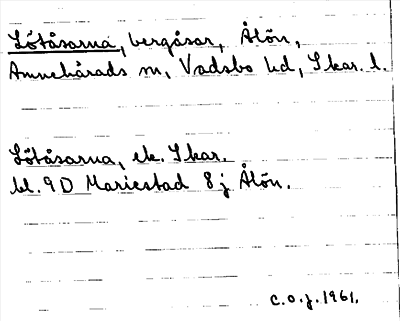 Lötåsarna, bergåsar, Ålön,
Amnehärads sn, Vadsbo hd, Skar. l.
Lötåsarna, ek. Skar.
bl. 9D Mariestad 8j Ålön.
C.O.J. 1961.